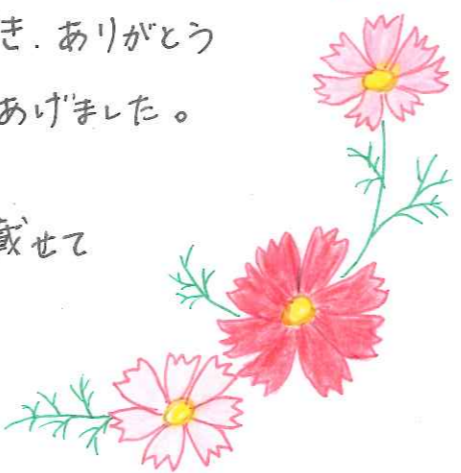 き．ありがとう
あげました。
載せて